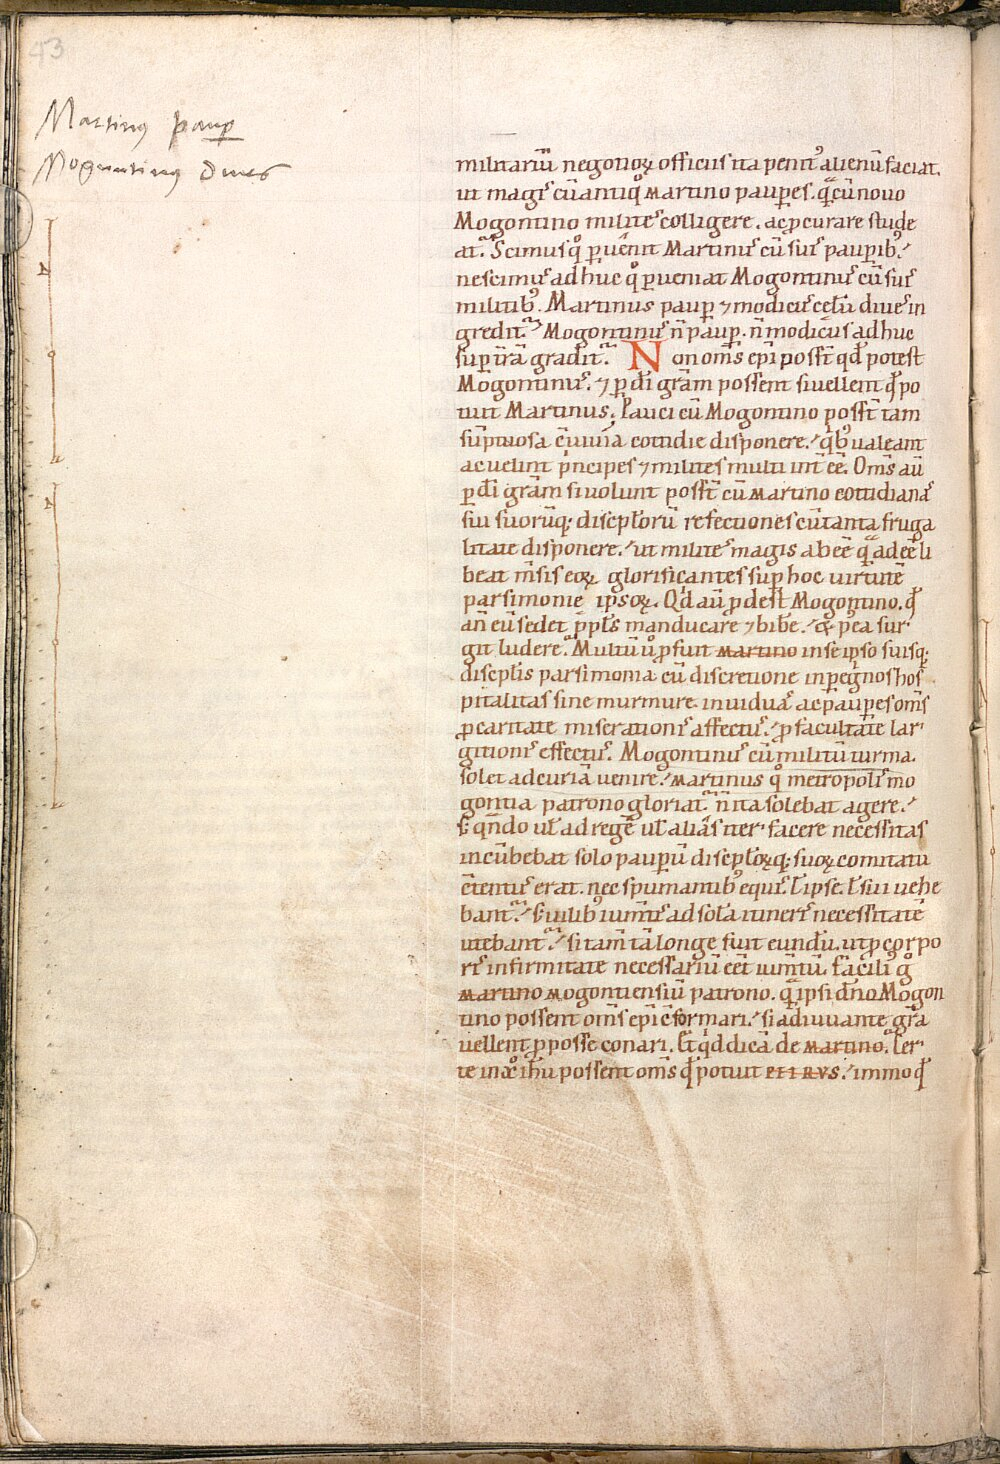 43
Martinus paup̲
Mogontinus diues
militariū negotioꝝ officiis ita penitꝰ alienū faciat.
ut magiˢ cū antiq̊ martino paup̲es. q̄ cū nouo
Mogontino militeˢ colligere. ac ꝓcurare stude
at. Scimus q̊ p̲uēnit Martinuˢ cū suiˢ paup̲ibꝰ.
nescimuˢ adhuc q̊ p̲ueniat Mogontinuˢ cū suiˢ
militibꝰ. Martinus paup̲ ⁊ modicuˢ cęlū diueˢ in
gredit̃. Mogontinuˢ n̄ paup̲. n̄ modicus adhuc
sup̲ t̄rā gradit̃. Non om̄s ep̄i poss̄t qd̄ potest
Mogontinuˢ. ⁊ p̲ dī grām possent si uellent q̄ po
tuit Martinus. Pauci cū Mogontino poss̄t tam
sūptuosa cūuiuia cotidie disponere. qībꝰ ualeant
ac uelint p̄ncipes ⁊ milites multi int̄ēē. Om̄s aū
p̲ dī grām si uolunt poss̄t cū martino cotidianaˢ
sui suorūq; discip̄lorū refectiones cū tanta fruga
litate disponere. ut militeˢ magis abēē q̄ adēē li
beat m̄sis eoꝝ glorificantes sup̲ hoc uirtutē
parsimonię ipsoꝝ. Qd̄ aū ꝓdest Mogontino. q̄
an̄ eū sedet p̄pl̄s manducare ⁊ bibe̅. & p̄ea sur
git ludere. Multū ů ꝓfuit martino in se ipso suisq;
discip̄lis parsimonia cū discretione in p̲egnos hos
pitalitas sine murmure. in uiduaˢ ac paup̲es om̄s
ꝓ caritate miserationiˢ affectuˢ. ꝓ facultate lar
gitioniˢ effectuˢ. Mogontinuˢ cū militū turma
solet ad curiā uenire. martinus q̊ metropoliˢ mo
gontia patrono gloriat̃. n̄ ita solebat agere.
s; qn̄do ul̄ ad regē ul̄ aliaˢ iter facere necessitas
incūbebat solo paup̲ū discip̄loꝝq; suoꝝ comitatu
c̄tentuˢ erat. nec spumantibꝰ equiˢ. l̄ ipse. l̄ sui uehe
bant̃. s; uilibꝰ ium̄tiˢ ad sola itineriˢ necessitatē
utebant̃. si tam̄ tā longe fuit eundū. ut ꝓ corpo
riˢ infirmitate necessariū eēt ium̄tū. Faciliˢ g̊
martino mogontiensiū patrono. q̄ ipsi dn̄o Mogon
tino possent om̄s ep̄i c̄formari. si adiuuante gr̄a
uellent ꝓ posse conari. Et q̊d dicā de martino. Cer
te in xp̄o ihū possent om̄s q̄ potuit petrvs. immo q̄